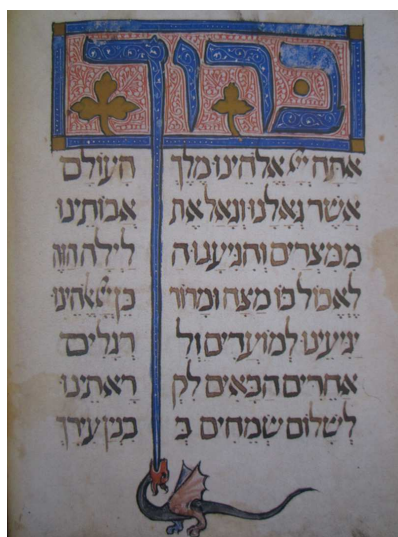 ברוך
אתה יי אלהינו מלך העולם
אשר גאלנו וגאל את אבותינו
ממצרים והגיענו ה לילה הזה
לאכול בו מצה ומרור כן יי אלהינו
יגיענו למועדים ול רגלים
אחרים הבאים לק ראתינו
לשלום שמחים ב בנין עירך